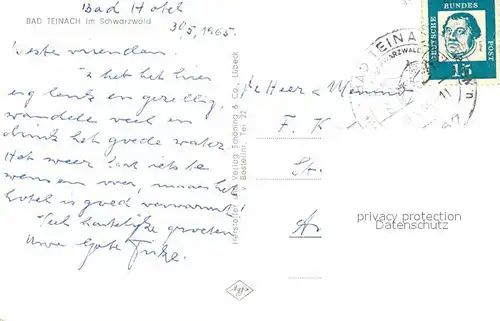 Bad Hotel
BAD TEINACH im Schwarzwald
30/5, 1965.
Beste vrienden.
't het hier
erg leuk en gezellig,
wandele veel en
drink het goede water
Het weer laat iets te
wensen over, maar het
hotel is goed verwarmd!
Veel hartelijke groeten
Uwe
Hersteller u. Verlag Schöning & Co., Lübeck
v Bestellnr. Tei 22
De Heer & Mevrouw
F. K
St.
A
privacy protection
Datenschutz
BAD TEINA
SCHWARZWALD
DEUTSCHE BUNDES POST
15